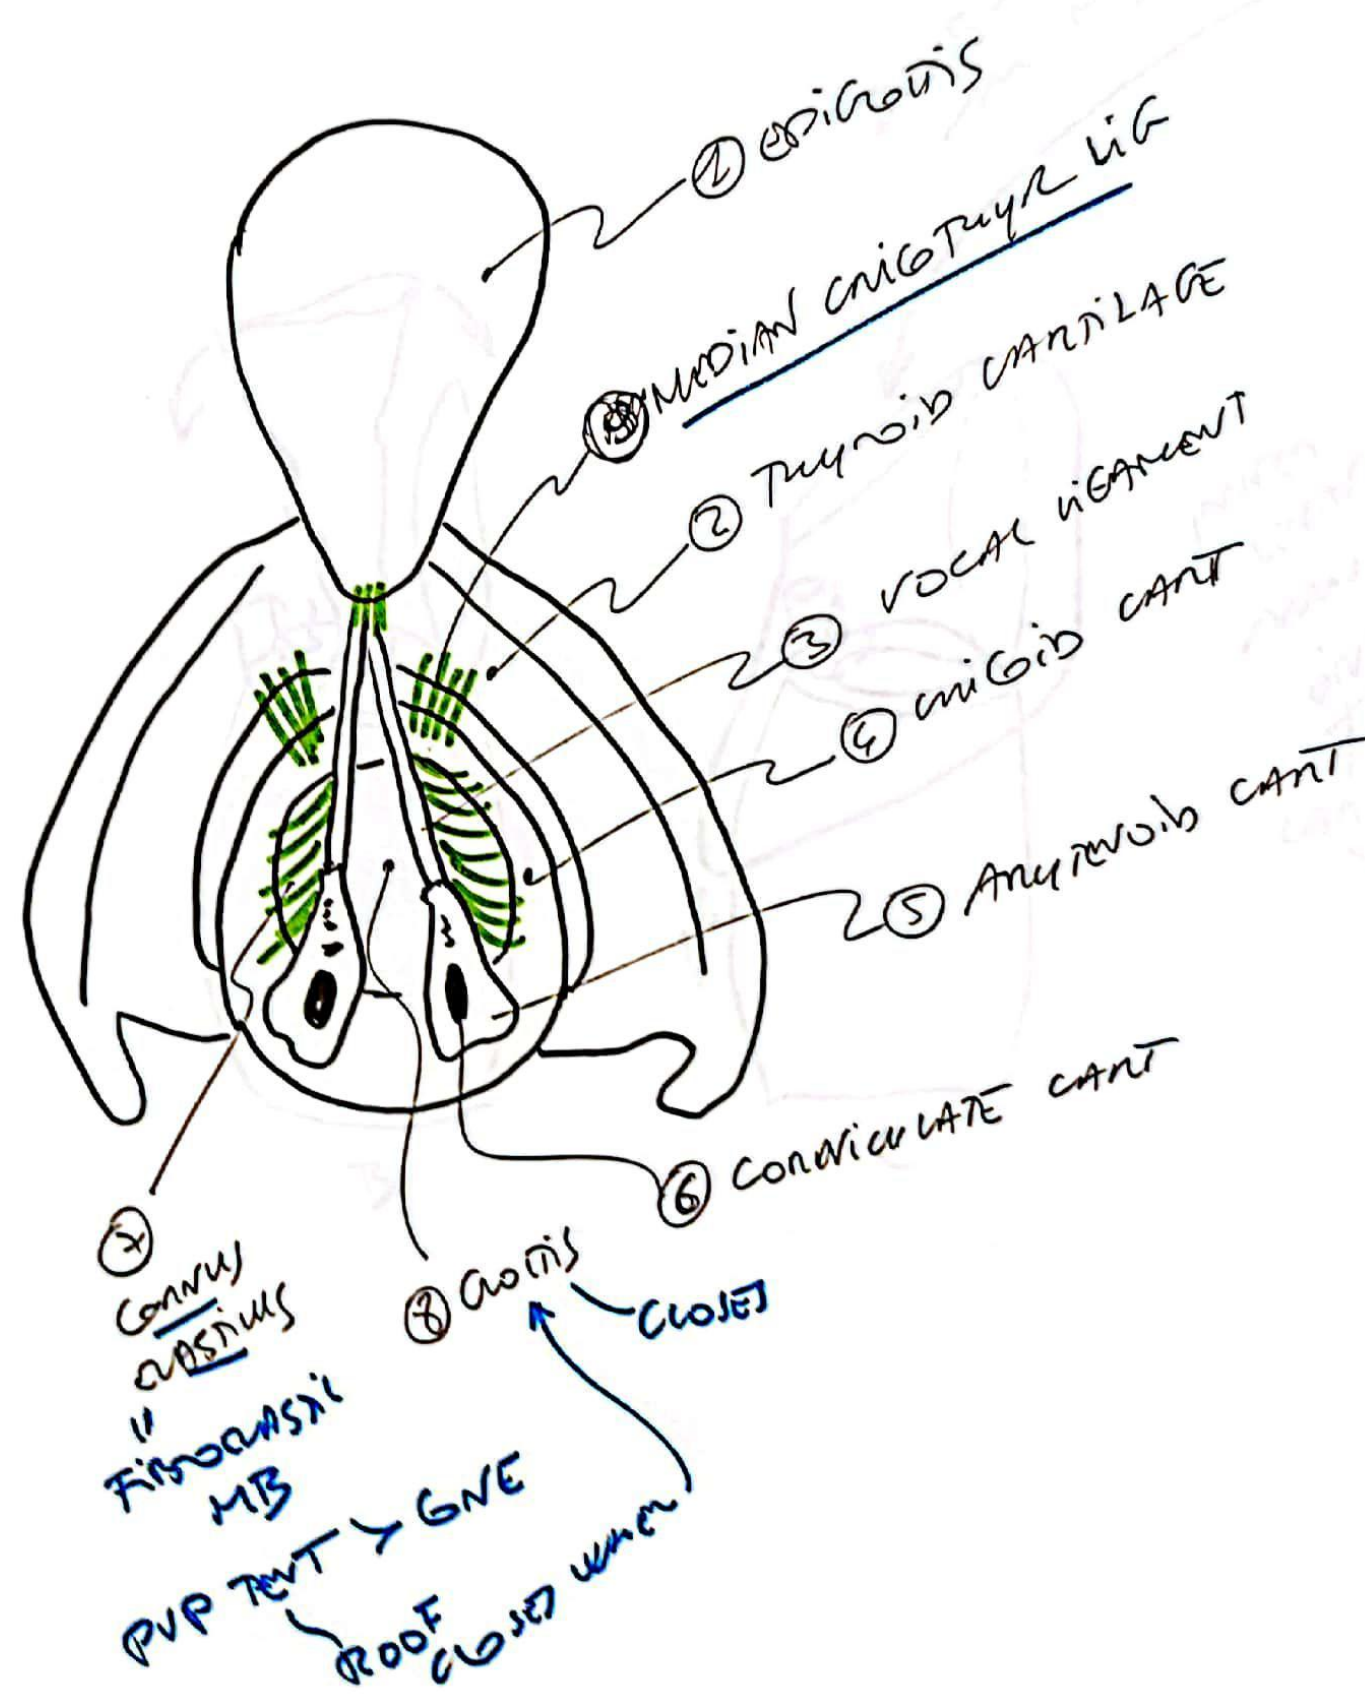 ① EPIGLOTTIS
MEDIAN CRICOTHYR LIG
② THYROID CARTILAGE
③ VOCAL LIGAMENT
④ CRICOID CART
⑤ ARYTENOID CART
⑥ CORNICULATE CART
⑦
CONNUS
ELASTICUS
=
FIBROELASTIC
MB
⑧ GLOTTIS
CLOSES
PUP TENT > GNE
ROOF
CLOSED WHEN